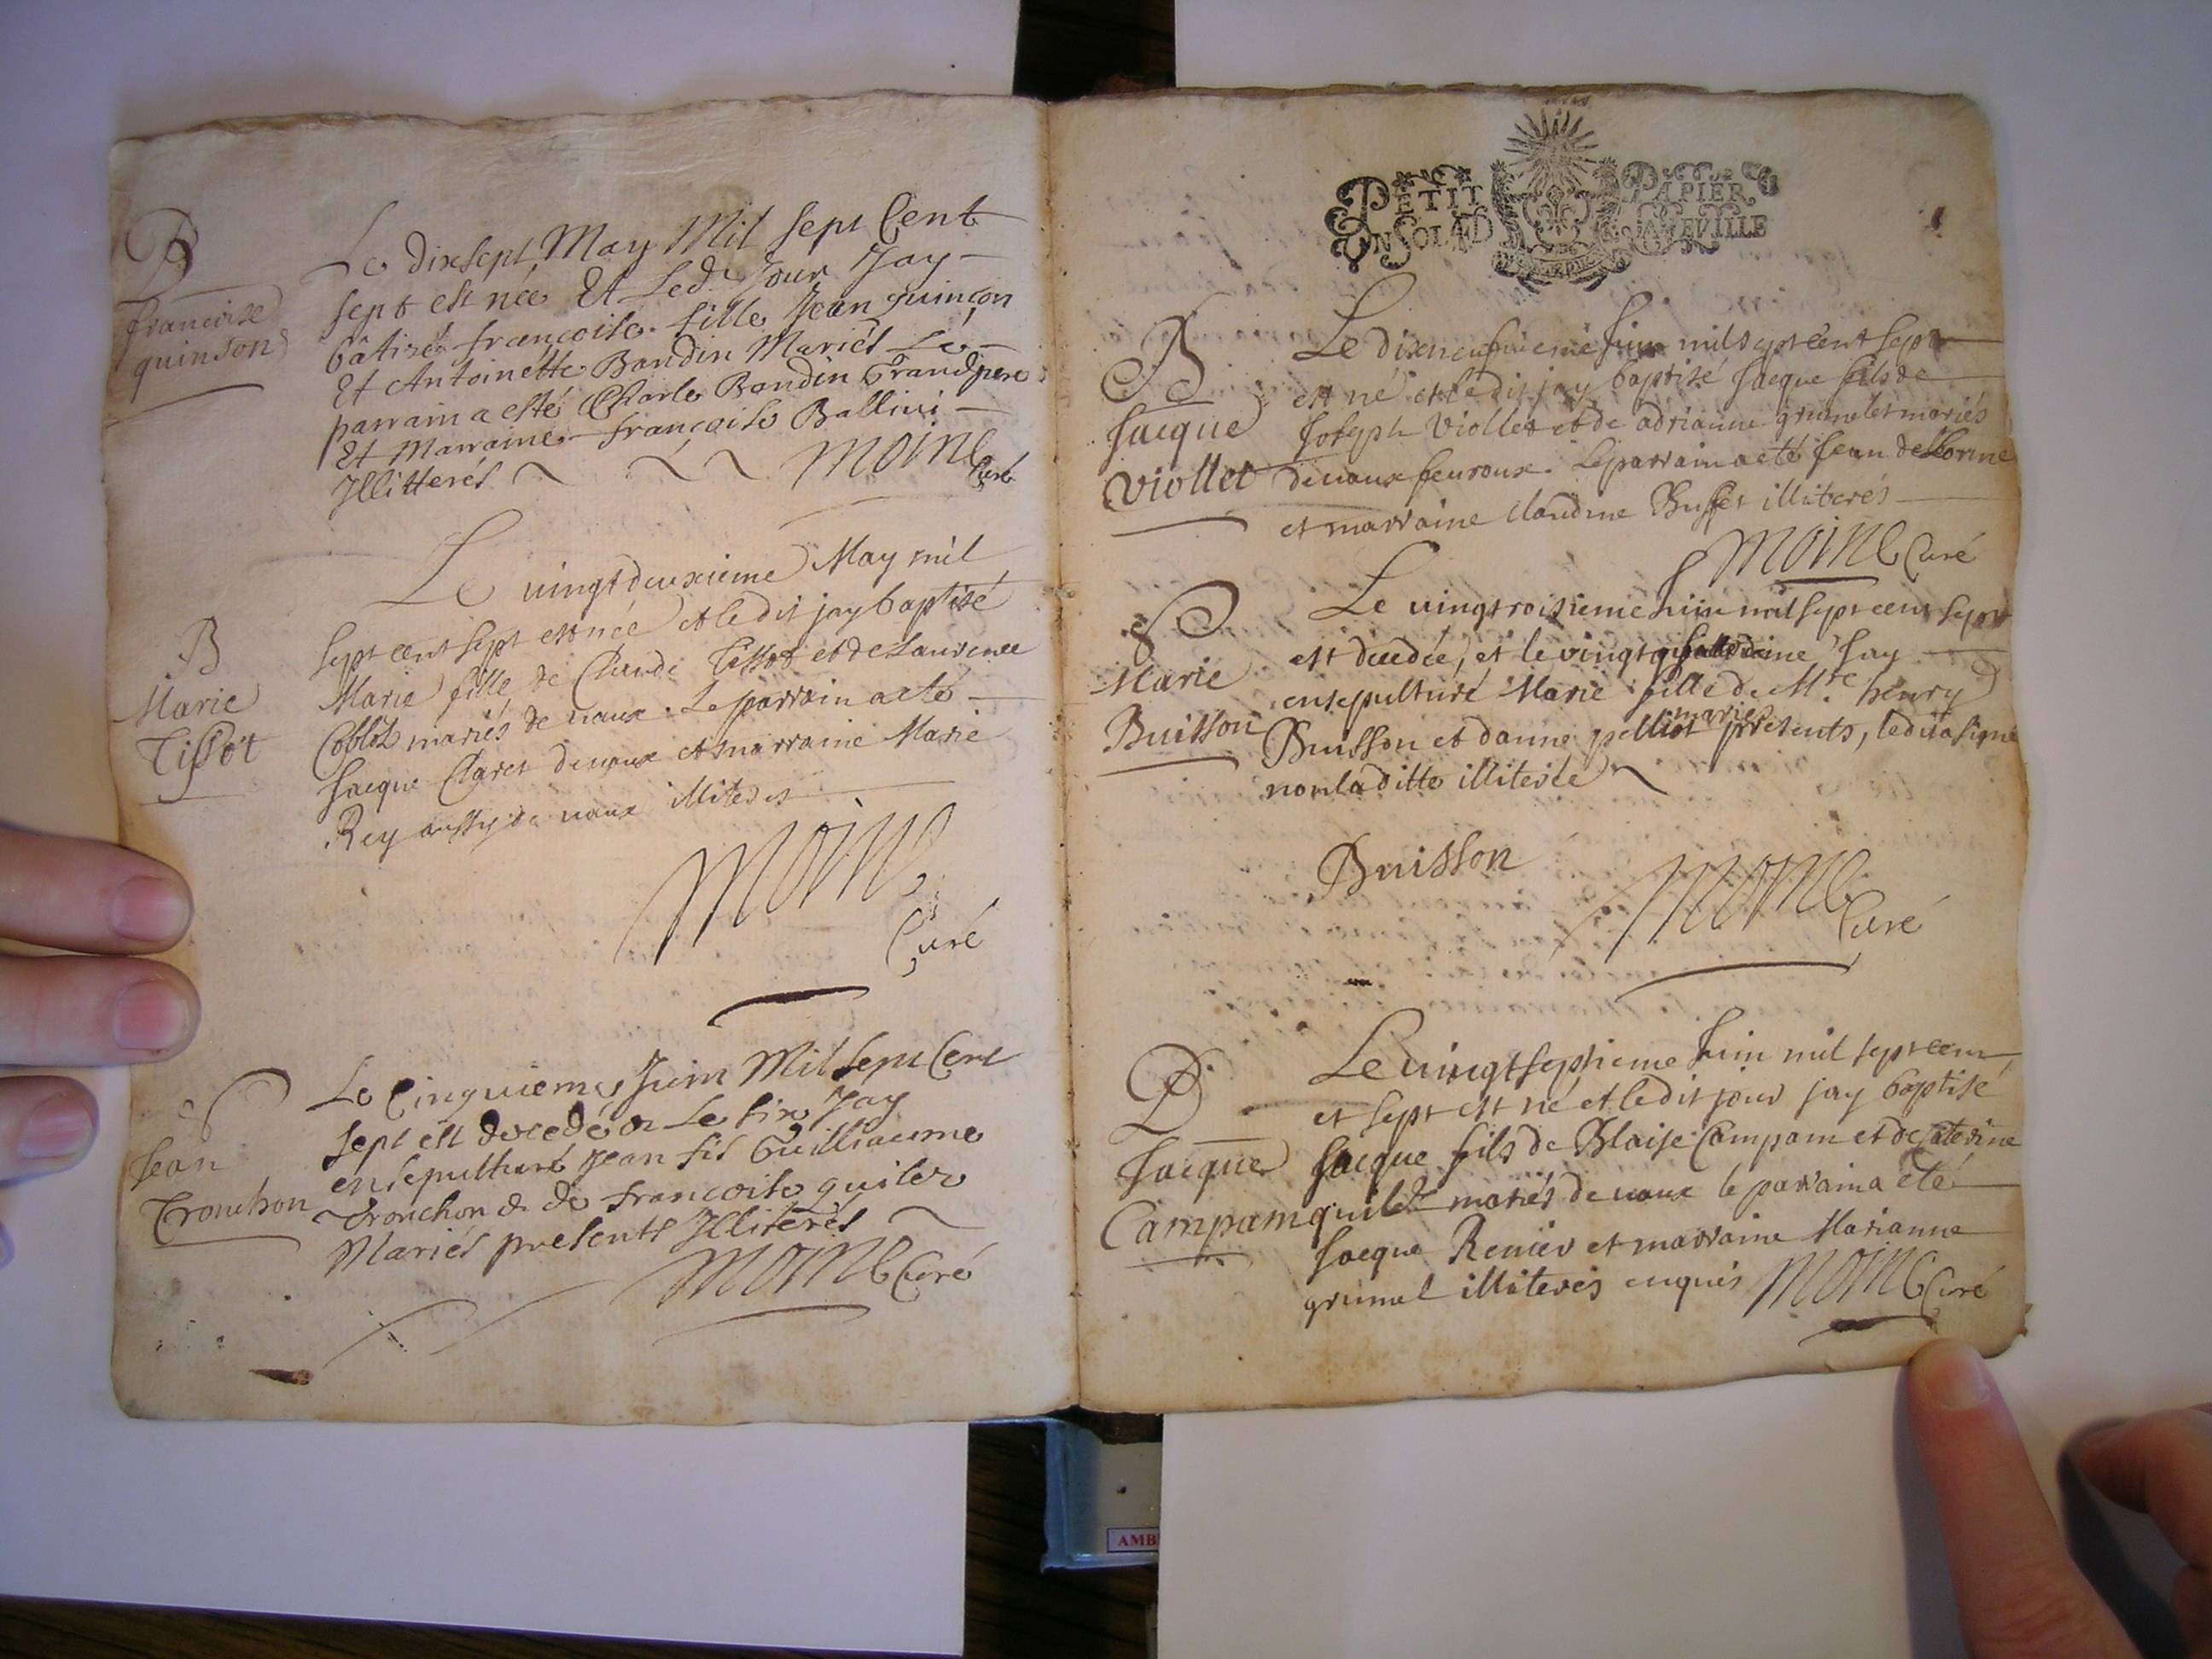 B
françoise
quinson
Le dixsept May Mil Sept Cent
sept est née Et Led. Jour Jay
bâtisé françoise fille Jean quinçon
Et Antoinette Bandin Mariés Le
parrain a esté Charle Bandin Grand pere
Et Marraine françoise Ballini
Illitterés Moine Curé
B
Marie
Tissot
Le vingt deuxieme May mil
sept cent sept est née et le dit jay baptisé
Marie fille de Claude Tissot et de Laurence
mariés de vaux. Le parrain a eté
Jacque Claret de vaux et marraine Marie
Rey aussy de vaux illiteres
Moine
Curé
S
Jean
Tronchon
Le Cinquieme Juin Mil Sept Cent
sept est decedé & Le six Jay
ensepulturé Jean fils Guilliaume
Tronchon & de francoise quiler
Mariés presents Illiterés
Moine Curé
PETIT PAPIER
UN SOL LA FEVILLE
B
Jacque
Viollet
Le dixneufvieme Juin mil sept cent sept
est né et le dit jay baptisé Jacque fils de
Joseph Viollet et de adrianne grumelet mariés
de vaux feuroux. Le parrain a eté Jean delorme
et marraine Claudine Buffet illiterés
Moine Curé
S
Marie
Buisson
Le vingtroisieme Juin mil sept cent sept
est decedée, et le vingt Jay
ensepulturé Marie fille de Mre henry
Buisson et d'anne pelliot mariés presents, ledit a signé
non la ditte illiterée
Buisson
Moine
Curé
B
Jacque
Campam
Le vingt septieme Juin mil sept cent
et sept est né et le dit jour jay baptisé
Jacque fils de Blaise Campam et de Caterine
quiler mariés de vaux le parrain a eté
Jacque Renier et marraine Marianne
grumel illiterés enquis Moine Curé
AMB